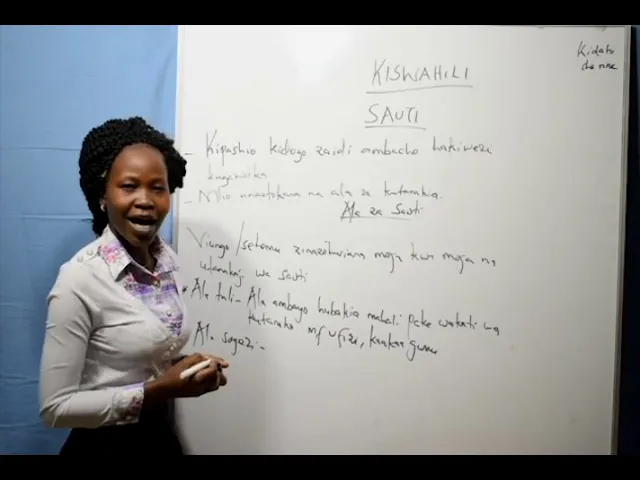 Kidato
cha nne
KISWAHILI
SAUTI
- Kipashio kidogo zaidi ambacho hakiwezi
kugawika
- Mlio unaotokana na ala za kutamkia.
Ala za Sauti
Viungo/sehemu zinazohusiana moja kwa moja na
utamkaji wa sauti
* Ala tuli - Ala ambazo hubakia mahali pake wakati wa
kutamka mf ufizi, kaakaa gumu
Ala sogezi -